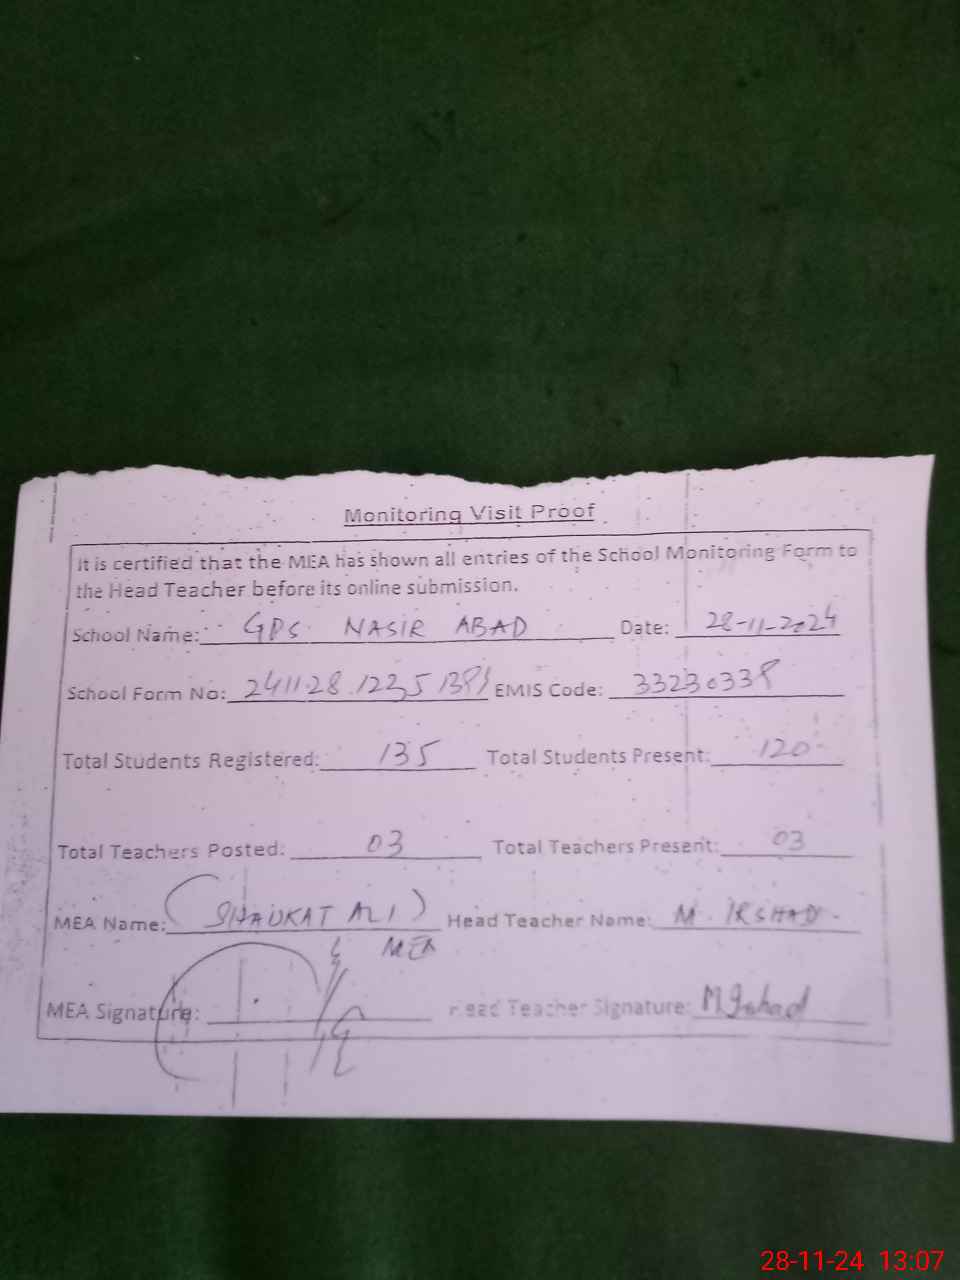 Monitoring Visit Proof
It is certified that the MEA has shown all entries of the School Monitoring Form to
the Head Teacher before its online submission.
School Name: GPS NASIR ABAD Date: 28-11-2024
School Form No: EMIS Code: 33230338
Total Students Registered: 135 Total Students Present: 120
Total Teachers Posted: 03 Total Teachers Present: 03
MEA Name: (SHAUKAT ALI) Head Teacher Name: M. IRSHAD.
MEA
MEA Signature: Head Teacher Signature: M Irshad
28-11-24 13:07